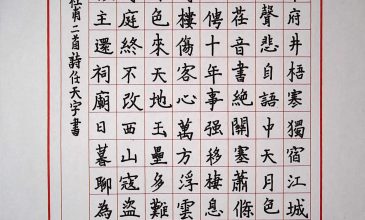 府井梧寒獨宿江城
聲悲自語中天月色
荏音書絕關塞蕭條
俜十年事强移棲息
樓傷客心萬方浮雲
色來天地玉壘多難
庭終不改西山寇盜
主還祠廟日暮聊為
杜甫二首詩任天宇書